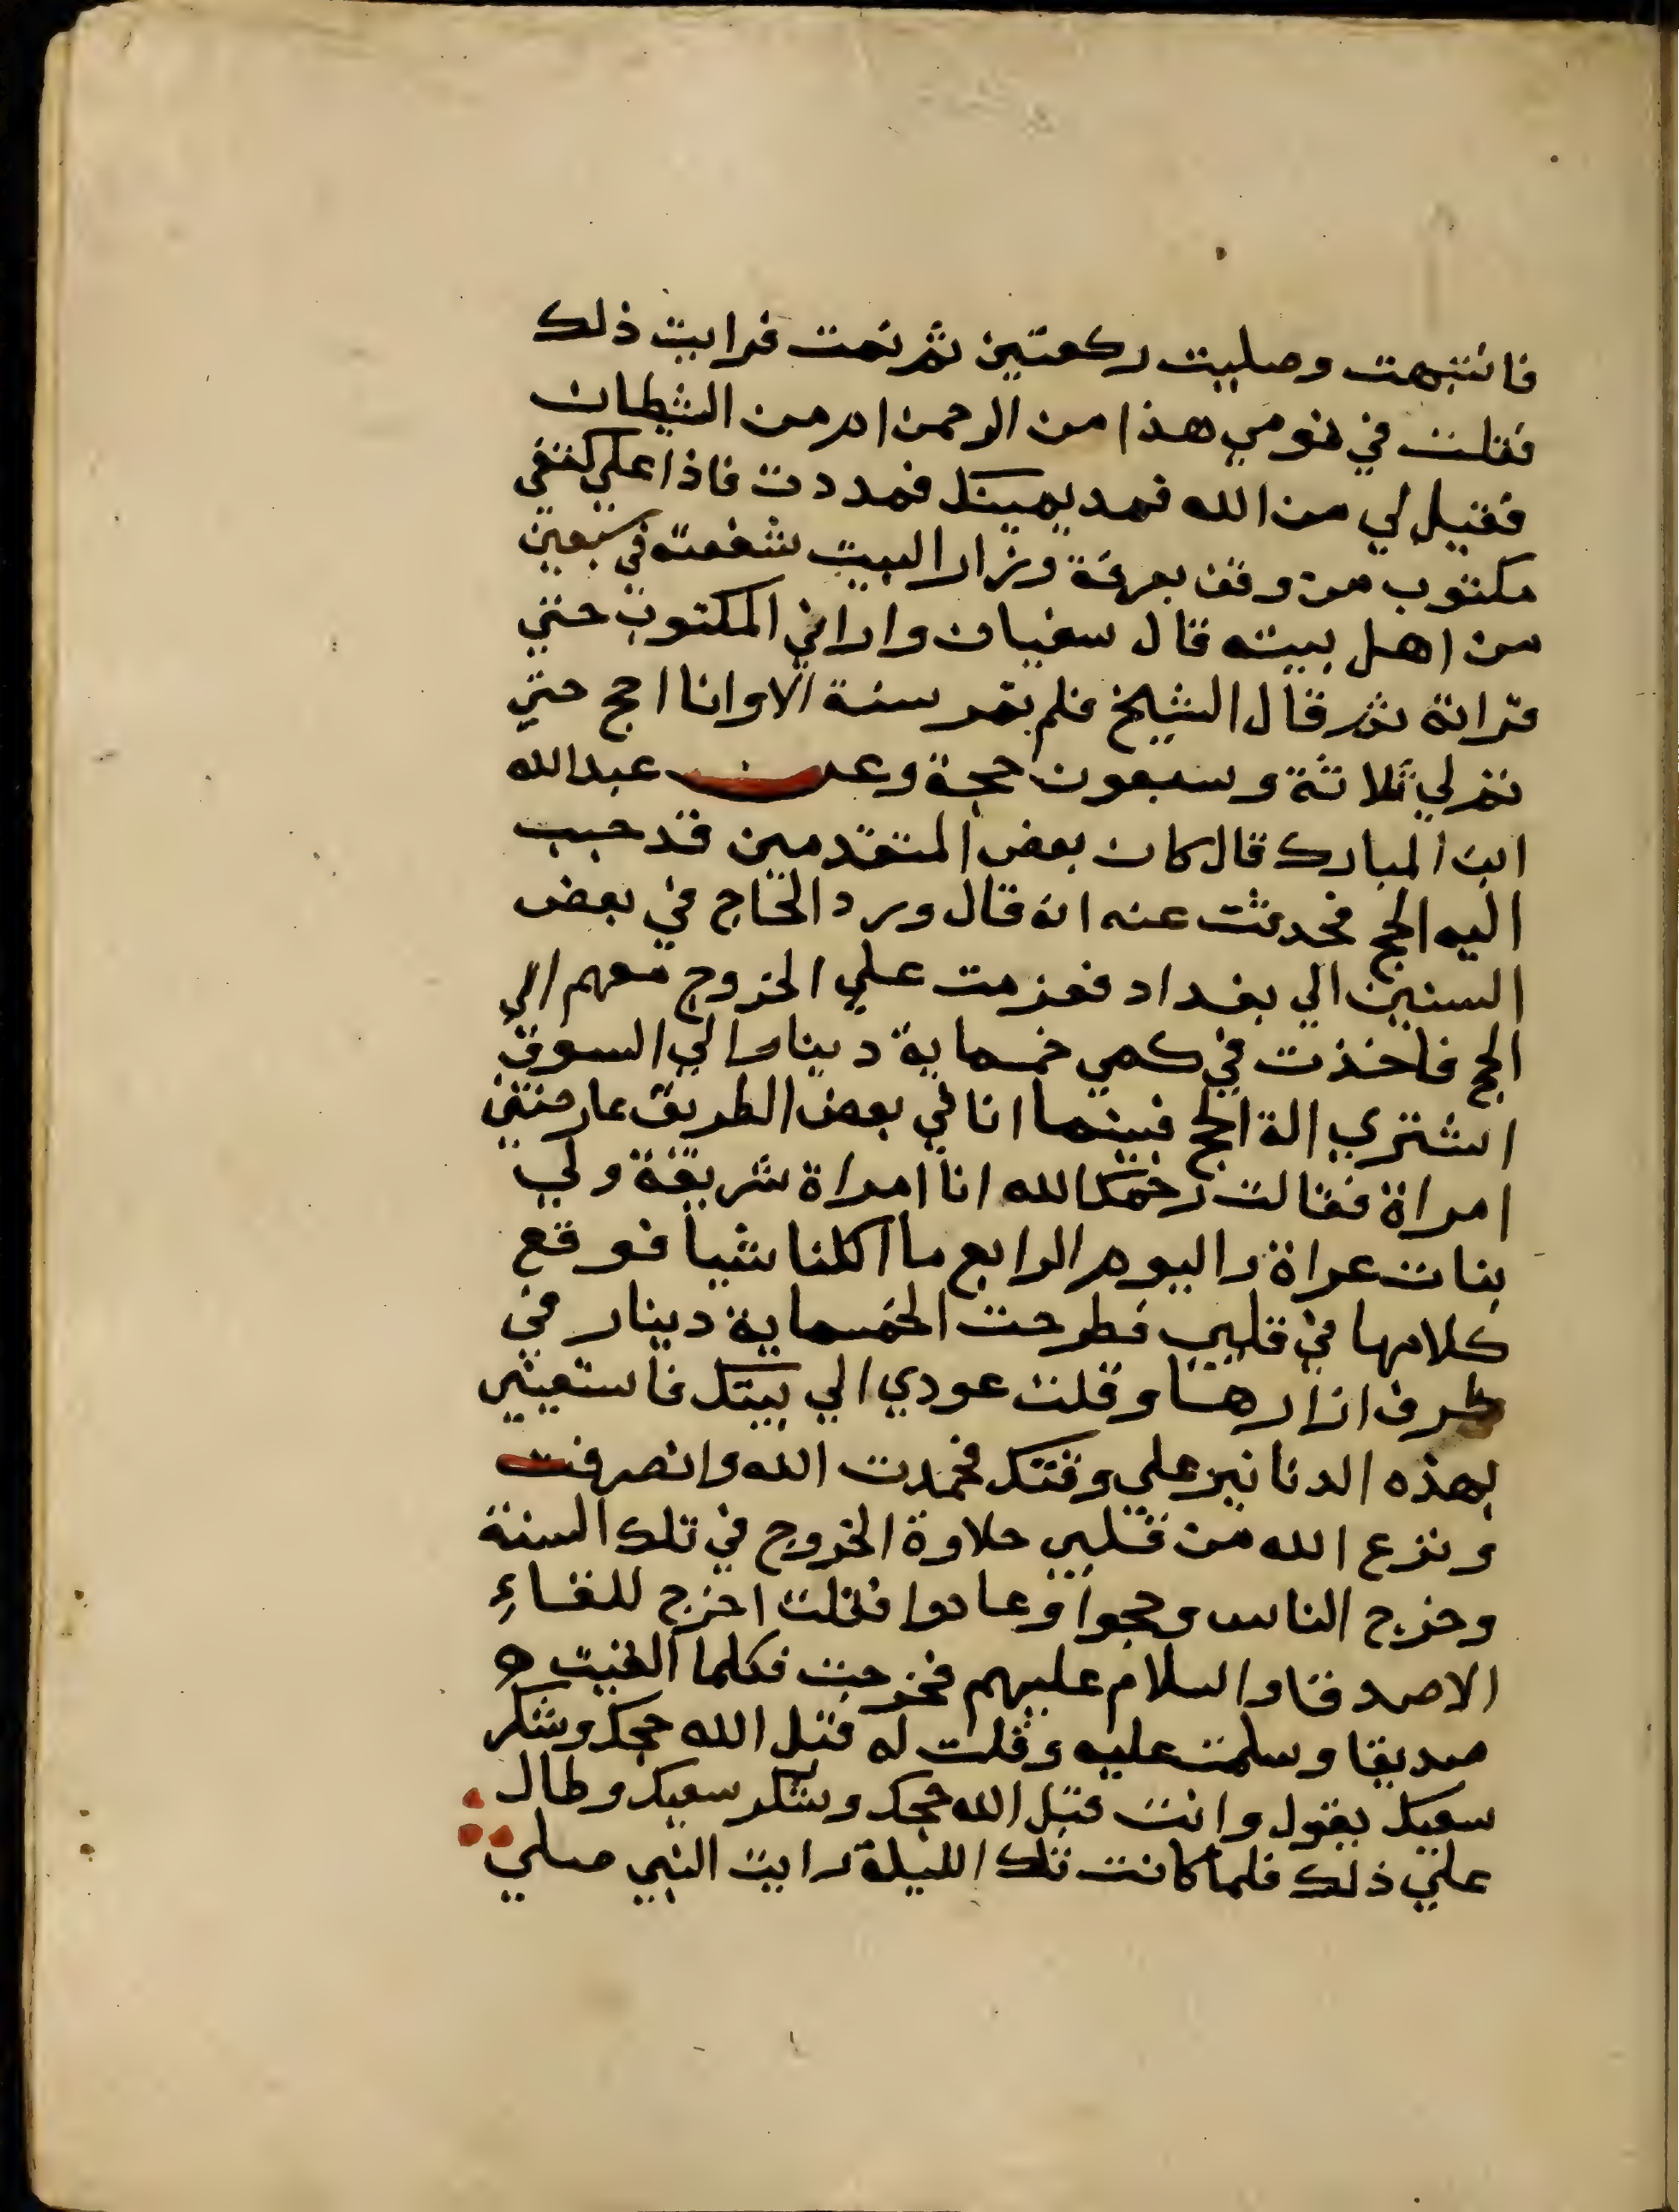 فانتبهت وصليت ركعتين ثم نمت فرايت ذلك
فقلت في نومي هذا من الرحمن ام من الشيطان
فقيل لي من الله فمد يمينك فمددت فاذا علي كتفي
مكتوب من وقف بعرفة وزار البيت شفعته في سبعين
من اهل بيته قال سفيان واراني المكتوب حتي
قراته ثم قال الشيخ فلم تمر سنة الا وانا احج حتي
تم لي ثلاثة وسبعون حجة وعن عبد الله
ابن المبارك قال كان بعض المتقدمين قد حبب
اليه الحج فحدثت عنه انه قال ورد الحاج في بعض
السنين الي بغداد فعزمت علي الخروج معهم الي
الحج فاخذت في كمي خمسماية دينار الي السوق
اشتري الة الحج فبينما انا في بعض الطريق عارضتني
امراة فقالت رحمك الله انا امراة شريفة ولي
بنات عراة واليوم الرابع ما اكلنا شيا فوقع
كلامها في قلبي فطرحت الخمسماية دينار في
طرف ازارها وقلت عودي الي بيتك فاستعيني
بهذه الدنانير علي وقتك فحمدت الله وانصرفت
ونزع الله من قلبي حلاوة الخروج في تلك السنة
وخرج الناس وحجوا وعادوا فقلت اخرج للقاء
الاصدقا والسلام عليهم فخرجت فكلما القيت
صديقا وسلمت عليه وقلت له قبل الله حجك وشكر
سعيك يقول وانت قبل الله حجك وشكر سعيك وطال
علي ذلك فلما كانت تلك الليلة رايت النبي صلي